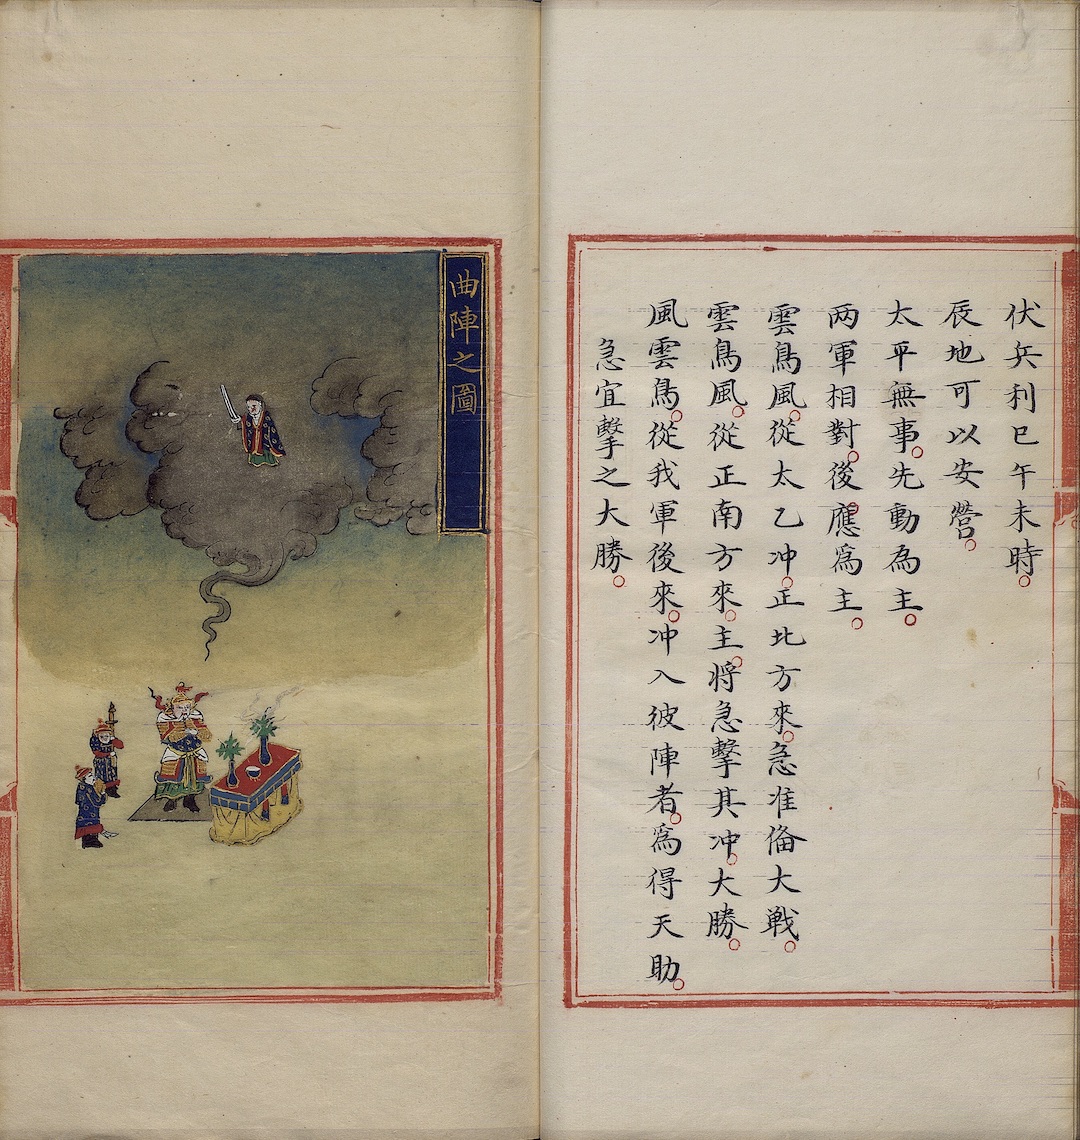 伏兵利巳午未時。
辰地可以安營。
太平無事。先動為主。
两軍相對。後應為主。
雲鳥風。從太乙冲。正北方來。急准俻大戰。
雲鳥風。從正南方來。主將急擊其冲。大勝。
風雲鳥。從我軍後來。冲入彼陣者。爲得天助。
急宜擊之大勝。
曲陣之圖